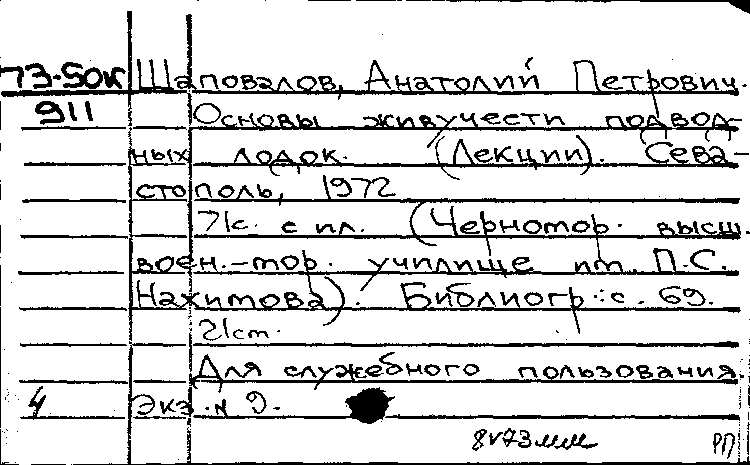 73-50к Шаповалов, Анатолий Петрович.
911 Основы живучести подвод-
ных лодок. (Лекции). Сева-
стополь, 1972
71с. с ил. (Черномор. высш.
воен.-мор. училище им. П.С.
Нахимова). Библиогр.: с. 69.
21см.
Для служебного пользования.
4 Экз. № 9.
РП